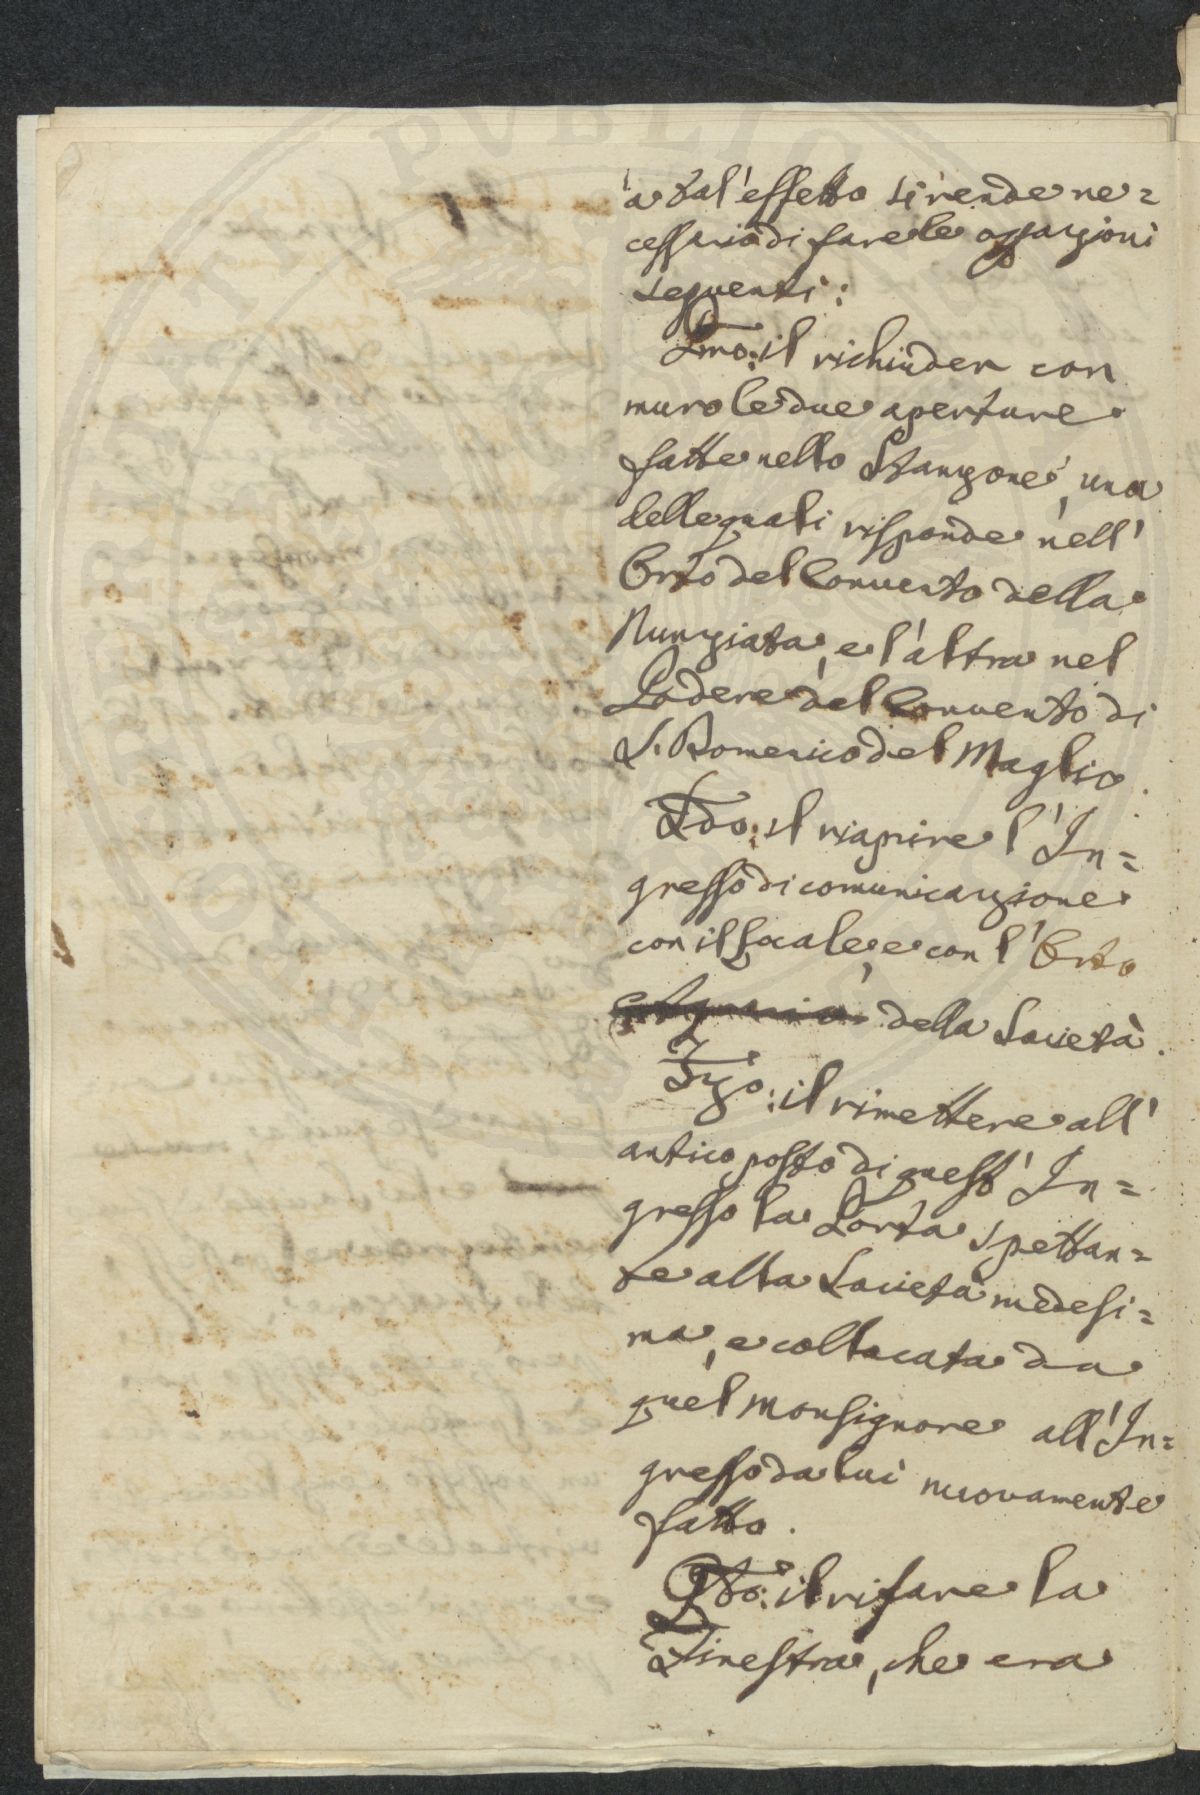 a tal'effetto si rende ne=
cessario di fare le
seguenti:
Pmo: il richiuder con
muro le due aperture
fatte nello Stanzone, una
delle quali risponde nell'
Orto del Convento della
Nunziata, e l'altra nel
Podere del Convento di
S. Domenico del Maglio.
Sdo: il riaprire l'In=
gresso di comunicazione
con il Locale, e con l'Orto
della Società.
Tzo: il rimettere all'
antico posto di quest'In=
gresso la Porta spettan=
te alla Società medesi=
ma, e collocata da
quel Monsignore all'In=
gresso da lui nuovamente
fatto.
Qto: il rifare la
Finestra, che era